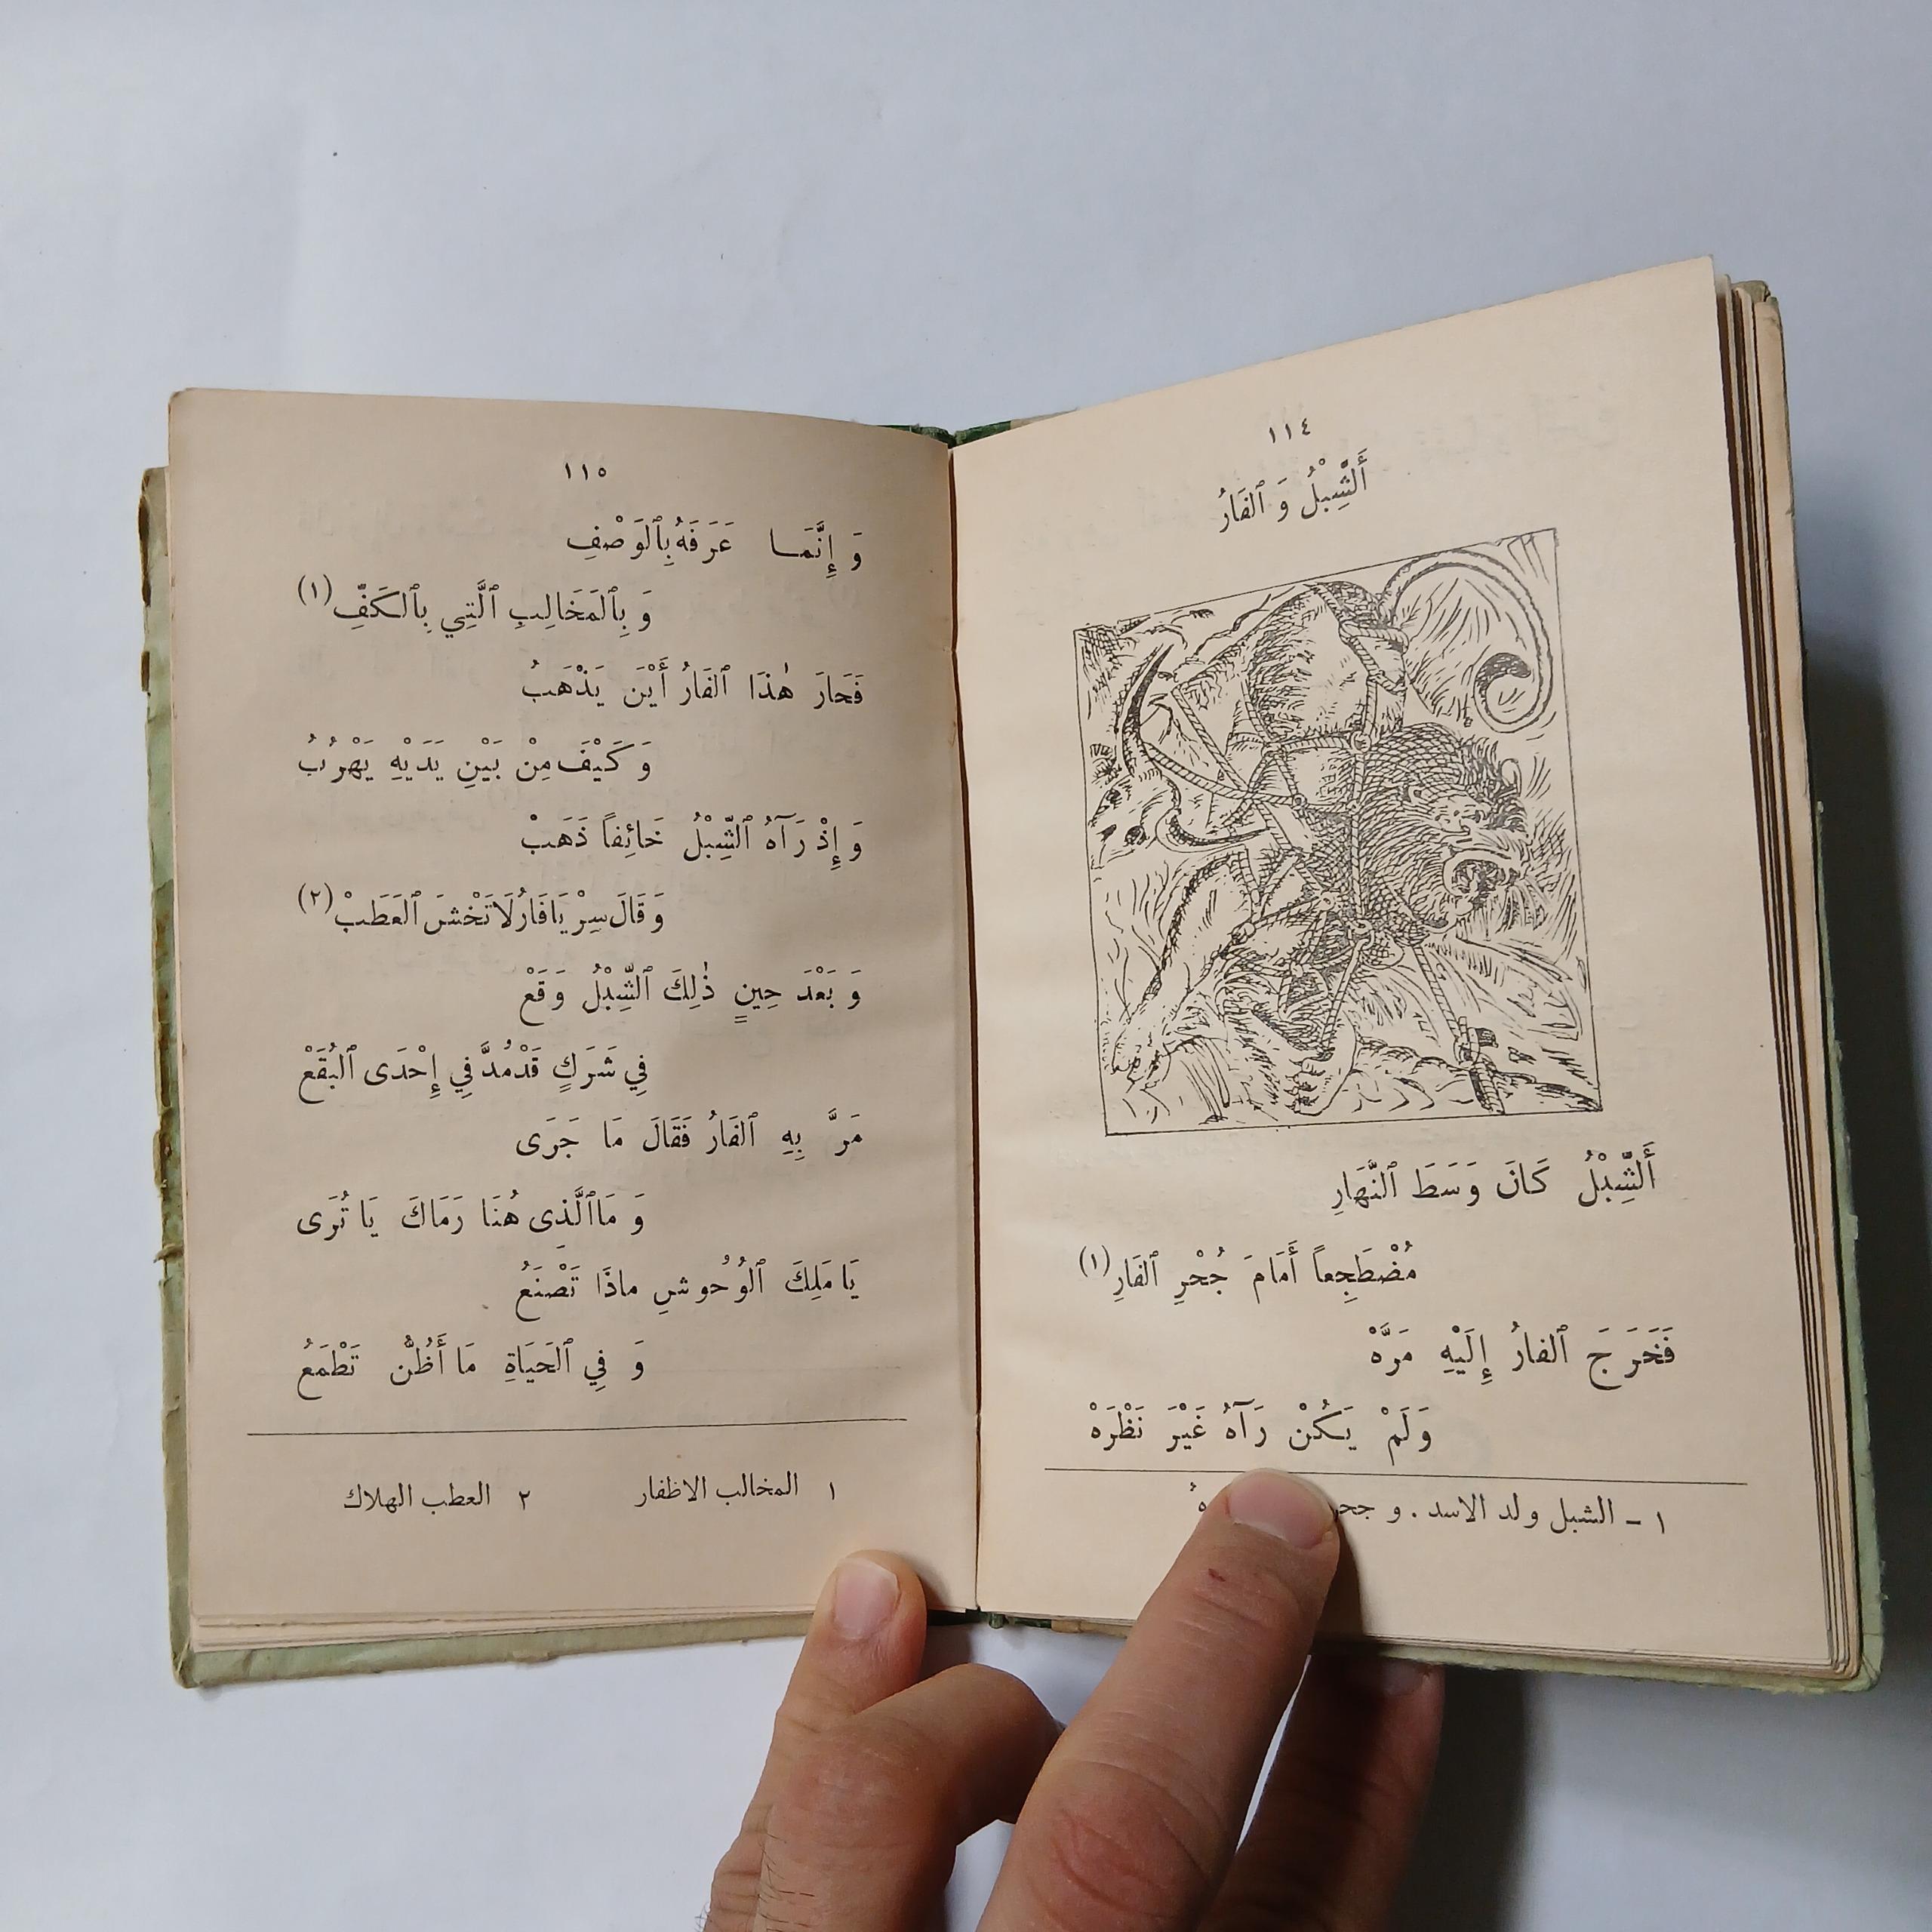 ١١٤
أَلشِّبْلُ وَ ٱلفَارُ
أَلشِّبْلُ كَانَ وَسَطَ ٱلنَّهَارِ
مُضْطَجِعاً أَمَامَ جُحْرِ ٱلفَارِ (١)
فَخَرَجَ ٱلفارُ إِلَيْهِ مَرَّهْ
وَلَمْ يَكُنْ رَآهُ غَيْرَ نَظْرَهْ
١ – الشبل ولد الاسد . و جحر
١١٥
وَ إِنَّمَا عَرَفَهُ بِٱلوَصْفِ
وَ بِٱلمَخَالِبِ ٱلَّتِي بِٱلكَفِّ (١)
فَحَارَ هٰذَا ٱلفَارُ أَيْنَ يَذْهَبُ
وَ كَيْفَ مِنْ بَيْنِ يَدَيْهِ يَهْرُبُ
وَ إِذْ رَآهُ ٱلشِّبْلُ خَائِفاً ذَهَبْ
وَ قَالَ سِرْ يَا فَارُ لَا تَخْشَ ٱلعَطَبْ (٢)
وَ بَعْدَ حِينٍ ذٰلِكَ ٱلشِّبْلُ وَقَعْ
فِي شَرَكٍ قَدْ مُدَّ فِي إِحْدَى ٱلبُقَعْ
مَرَّ بِهِ ٱلفَارُ فَقَالَ مَا جَرَى
وَ مَا ٱلَّذِى هُنَا رَمَاكَ يَا تُرَى
يَا مَلِكَ ٱلوُحُوشِ ماذَا تَصْنَعُ
وَ فِي ٱلحَيَاةِ مَا أَظُنُّ تَطْمَعُ
١ المخالب الاظفار ٢ العطب الهلاك